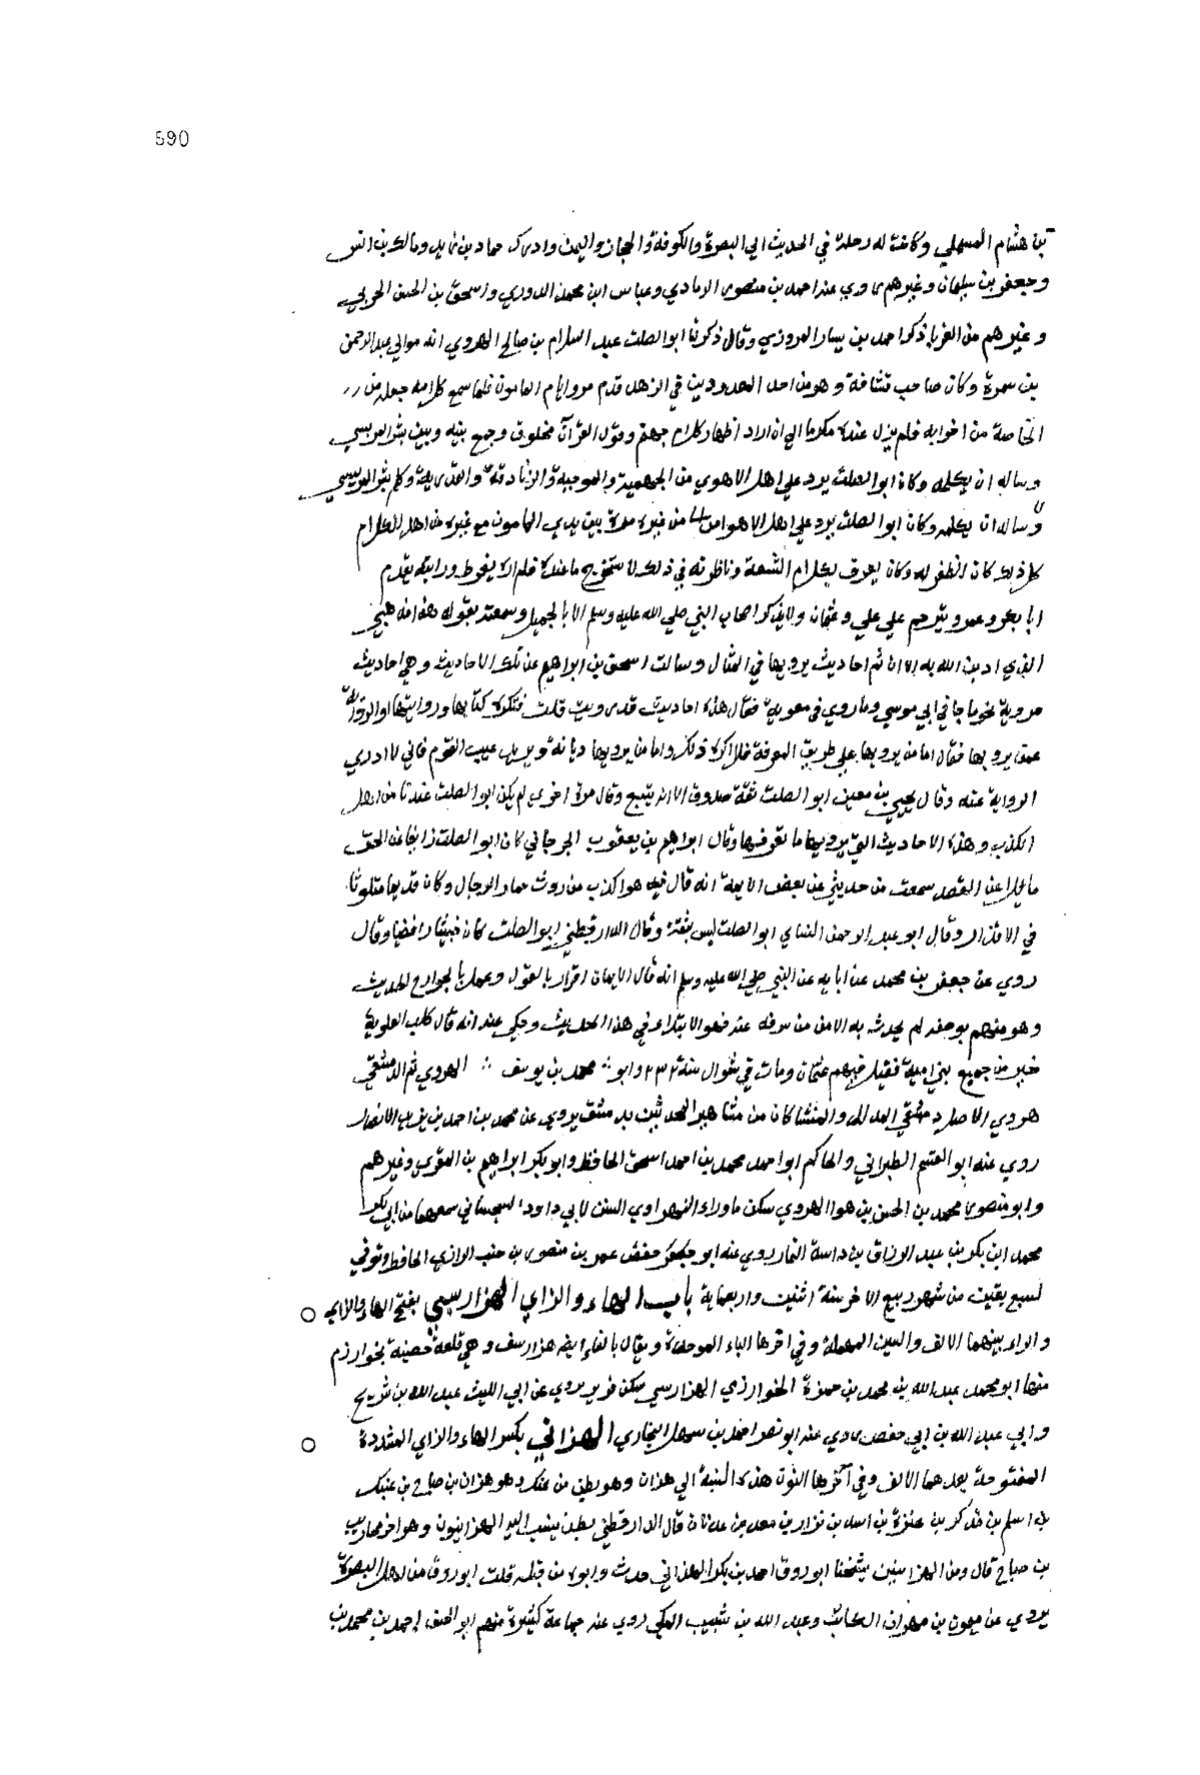 590
بن هشام المسملي وكانت له رحلة في الحديث الي البصرة والكوفة والحجاز واليمن وادرك حماد بن زيد ومالك بن انس
وجعفر بن سليمان وغيرهم روي عنه احمد بن منصور الرمادي وعباس ابن محمد الدوري واسحق بن الحسن الحربي
وغيرهم من الغربا ذكر احمد بن سيار المروزي وقال ذكرنا ابو الصلت عبد السلام بن صالح الهروي انه موالي عبد الرحمن
بن سمرة وكان صاحب قشافة وهو من احد المعدودين في الزهد قدم مرو ايام المامون فلما سمع كلامه جعله من
الخاصة من اخوانه فلم يزل عنده مكرما الي ان اراد اظهار كلام جهم وقول القرآن مخلوق وجمع بينه وبين بشر المريسي
وساله ان يكلمه وكان ابو الصلت يرد علي اهل الاهوي من الجهمية والمرجية والزنادقة والقدرية وكلم بشر المريسي
وساله ان يكلمه وكان ابو الصلت يرد علي اهل الاهوا من غيره مرة بين يدي المامون مع غيره من اهل الكلام
كل ذلك كان الظفر له وكان يعرف بكلام الشيعة وناظرته في ذلك لاستخرج ما عنده فلم اره يفرط ورايته يقدم
ابا بكر وعمر ويترحم علي علي وعثمان ولا يذكر اصحاب النبي صلي الله عليه وسلم الا بالجميل وسمعته يقول هذا مذهبي
الذي ادين الله به الا ان ثم احاديث يرويها في المثال وسالت اسحق بن ابراهيم عن تلك الاحاديث وهي احاديث
مروية نحو ما جا في ابي موسي وما روي في معوية فقال هذه احاديث قد رويت قلت فتكره كتابها وروايتها والرواية
عمن يرويها فقال اما من يرويها علي طريق المعرفة فلا اكره ذلك واما من يرويها ديانة ويريد عيب القوم فاني لا اري
الرواية عنه وقال يحيي بن معين ابو الصلت ثقة صدوق الا انه يتشيع وقال مرة اخري لم يكن ابو الصلت عندنا من اهل
الكذب وهذه الاحاديث التي يرويها ما نعرفها وقال ابراهيم بن يعقوب الجرجاني كان ابو الصلت زايغا عن الحق
مايلا عن القصد سمعت من حدثني عن بعض الايمة انه قال فيه هو اكذب من روث حمار الدجال وكان قديما متلوثا
في الاقذار وقال ابو عبد الرحمن النساي ابو الصلت ليس بثقة وقال الدارقطني ابو الصلت كان خبيثا رافضيا وقال
روي عن جعفر بن محمد عن ابايه عن النبي صلي الله عليه وسلم انه قال الايمان اقرار بالقول وعمل بالجوارح الحديث
وهو متهم بوضعه لم يحدث به الا من من سرقه عنه فهو الابتداء في هذا الحديث وحكي عنه انه قال كلب العلوية
خير من جميع بني امية فقيل فيهم عثمان ومات في شوال سنة ٢٣٢ وابو ∴ محمد بن يوسف ∴ الهروي ثم الدمشقي
هروي الاصل دمشقي المنشا كان من مشاهير المحدثين بدمشق يروي عن محمد بن احمد بن
روي عنه ابو القسم الطبراني والحاكم ابو احمد محمد بن احمد اسحق الحافظ وابو بكر ابراهيم بن المقري وغيرهم
وابو منصور محمد بن الحسن بن هو الهروي سكن ما وراء النهر راوي السنن لابي داود السجستاني سمعها من ابي بكر
محمد ابن بكر بن عبد الرزاق بن داسة التمار روي عنه ابو حفص عمر بن منصور بن خنب الرازي الحافظ وتوفي
لسبع بقيت من شهور ربيع الاخر سنة اثنين واربعماية باب الهاء والزاي الهزارسبي بفتح الهاء والزاي
والراء بينهما الالف والسين المهملة وفي اخرها الباء الموحدة ويقال بالفاء ايضا هزارسف وهي قلعة حصينة بخوارزم
منها ابو محمد عبد الله بن محمد بن حمزة الخوارزمي الهزارسبي سكن فربر يروي عن ابي الليث عبد الله بن شريح
وابي عبد الله بن ابي حفص روي عنه ابو نصر احمد بن سهل البخاري الهزاني بكسر الهاء والزاي المشددة
المفتوحة بعدهما الالف وفي آخرها النون هذه النسبة الي هزان وهو بطن من عتيك وهو هزان بن صباح بن عتيك
بن اسلم بن يذكر بن عنزة بن اسد بن نزار بن معد بن عدنان قال الدارقطني بطن ينسب اليه الهزانيون وهو اخو محارب
بن صباح قال ومن الهزانيين شيخنا ابو روق احمد بن بكر الهزاني حدث وابوه من قبله قلت ابو روق من اهل البصرة
يروي عن ميمون بن مهران الكاتب وعبد الله بن شبيب المكي روي عنه جماعة كثيرة منهم ابو الحسن احمد بن محمد بن